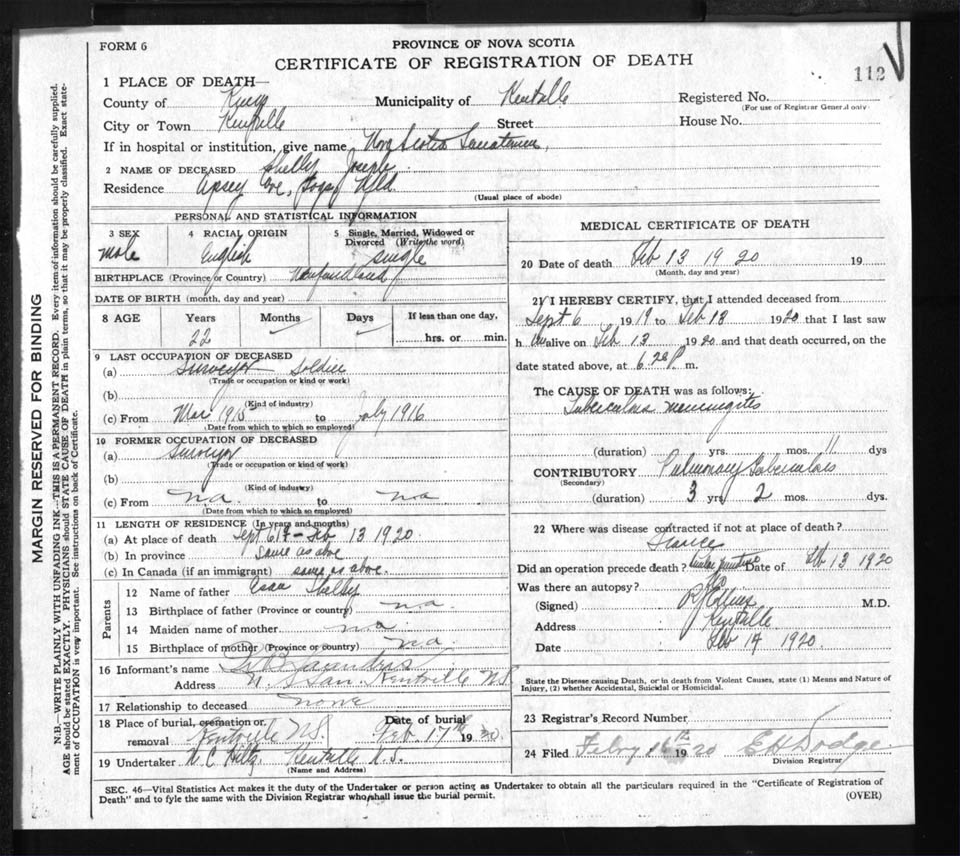 FORM 6
PROVINCE OF NOVA SCOTIA
CERTIFICATE OF REGISTRATION OF DEATH
112
1 PLACE OF DEATH—
County of Kings Municipality of Kentville Registered No.
(For use of Registrar General only)
City or Town Kentville Street House No.
If in hospital or institution, give name Nova Scotia Sanatorium,
2 NAME OF DECEASED Shelly Joseph
Residence Apsey Cove, Fogo, Nfld.
(Usual place of abode)
PERSONAL AND STATISTICAL INFORMATION
3 SEX 4 RACIAL ORIGIN 5 Single, Married, Widowed or Divorced (Write the word)
male English single
BIRTHPLACE (Province or Country) Newfoundland
DATE OF BIRTH (month, day and year)
8 AGE Years Months Days If less than one day,
22 hrs. or min.
9 LAST OCCUPATION OF DECEASED
(a) Surveyor Soldier
(Trade or occupation or kind or work)
(b)
(Kind of industry)
(c) From Mar 1915 to July 1916
(Date from which to which so employed)
10 FORMER OCCUPATION OF DECEASED
(a) Surveyor
(Trade or occupation or kind of work)
(b)
(Kind of industry)
(c) From na. to na
(Date from which to which so employed)
11 LENGTH OF RESIDENCE (In years and months)
(a) At place of death Sept 6 19 - Feb 13 1920.
(b) In province same as above
(c) In Canada (if an immigrant) same as above.
Parents
12 Name of father Shelly
13 Birthplace of father (Province or country) na.
14 Maiden name of mother na
15 Birthplace of mother (Province or country) na.
16 Informant's name Saunders
Address N. S. San. Kentville N.S.
17 Relationship to deceased none
18 Place of burial, cremation or removal Kentville N.S. Date of burial Feb. 17th 1920.
19 Undertaker N. C. Hiltz, Kentville N.S.
(Name and Address)
MEDICAL CERTIFICATE OF DEATH
20 Date of death Feb 13 1920 19
(Month, day and year)
21 I HEREBY CERTIFY, that I attended deceased from
Sept 6 1919 to Feb 13 1920 that I last saw
him alive on Feb 13 1920 and that death occurred, on the
date stated above, at 6.20 p m.
The CAUSE OF DEATH was as follows:
Tubercular meningitis
(duration) yrs. mos. 11 dys
CONTRIBUTORY Pulmonary Tuberculosis
(Secondary)
(duration) 3 yrs 2 mos. dys.
22 Where was disease contracted if not at place of death?
France
Did an operation precede death? Lumbar puncture Date of Feb 13 1920
Was there an autopsy?
(Signed) M.D.
Address Kentville
Date Feb 14 1920.
State the Disease causing Death, or in death from Violent Causes, state (1) Means and Nature of Injury, (2) whether Accidental, Suicidal or Homicidal.
23 Registrar's Record Number
24 Filed Febry 16th 1920 E H Dodge
Division Registrar
SEC. 46—Vital Statistics Act makes it the duty of the Undertaker or person acting as Undertaker to obtain all the particulars required in the "Certificate of Registration of
Death" and to fyle the same with the Division Registrar who shall issue the burial permit.
(OVER)
MARGIN RESERVED FOR BINDING
N.B.—WRITE PLAINLY WITH UNFADING INK—THIS IS A PERMANENT RECORD. Every item of information should be carefully supplied.
AGE should be stated EXACTLY. PHYSICIANS should STATE CAUSE OF DEATH in plain terms, so that it may be properly classified. Exact statement of OCCUPATION is very important. See instructions on back of Certificate.